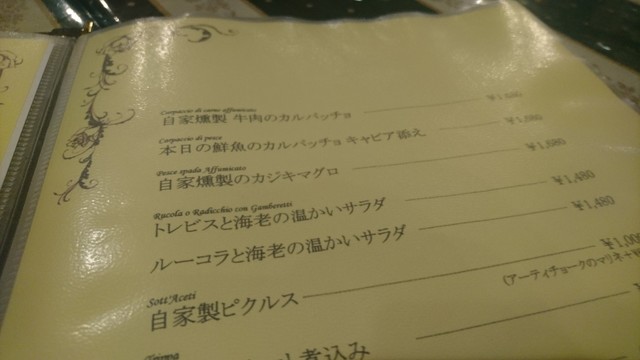 Carpaccio di carne affumicato
自家燻製 牛肉のカルパッチョ
Carpaccio di pesce
本日の鮮魚のカルパッチョ キャビア添え
Pesce spada Affumicato
自家燻製のカジキマグロ
Rucola o Radicchio con Gamberetti
トレビスと海老の温かいサラダ ¥1,480
ルーコラと海老の温かいサラダ ¥1,480
Sott'Aceti
自家製ピクルス
(アーティチョークのマリネ+
Trippa
煮込み